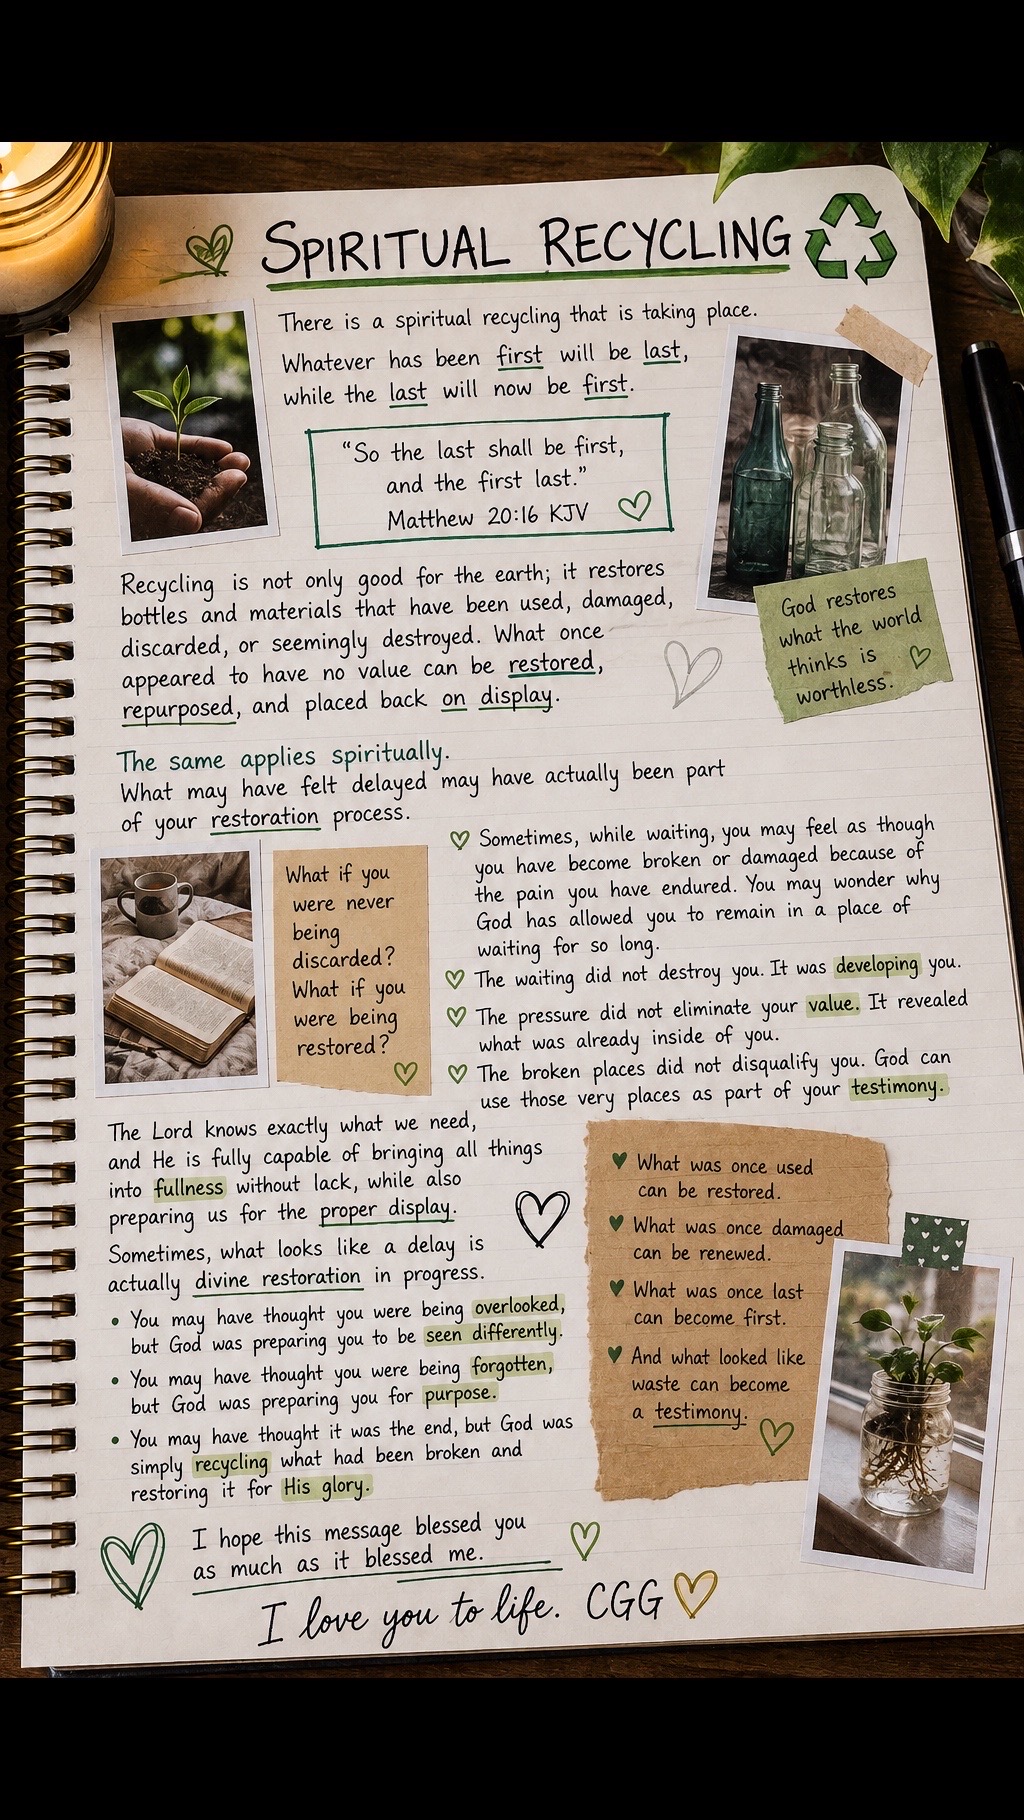 SPIRITUAL RECYCLING
There is a spiritual recycling that is taking place.
Whatever has been first will be last,
while the last will now be first.
“So the last shall be first,
and the first last.”
Matthew 20:16 KJV
Recycling is not only good for the earth; it restores
bottles and materials that have been used, damaged,
discarded, or seemingly destroyed. What once
appeared to have no value can be restored,
repurposed, and placed back on display.
God restores
what the world
thinks is
worthless.
The same applies spiritually.
What may have felt delayed may have actually been part
of your restoration process.
What if you
were never
being
discarded?
What if you
were being
restored?
Sometimes, while waiting, you may feel as though
you have become broken or damaged because of
the pain you have endured. You may wonder why
God has allowed you to remain in a place of
waiting for so long.
The waiting did not destroy you. It was developing you.
The pressure did not eliminate your value. It revealed
what was already inside of you.
The broken places did not disqualify you. God can
use those very places as part of your testimony.
The Lord knows exactly what we need,
and He is fully capable of bringing all things
into fullness without lack, while also
preparing us for the proper display.
Sometimes, what looks like a delay is
actually divine restoration in progress.
• You may have thought you were being overlooked,
but God was preparing you to be seen differently.
• You may have thought you were being forgotten,
but God was preparing you for purpose.
• You may have thought it was the end, but God was
simply recycling what had been broken and
restoring it for His glory.
What was once used
can be restored.
What was once damaged
can be renewed.
What was once last
can become first.
And what looked like
waste can become
a testimony.
I hope this message blessed you
as much as it blessed me.
I love you to life. CGG